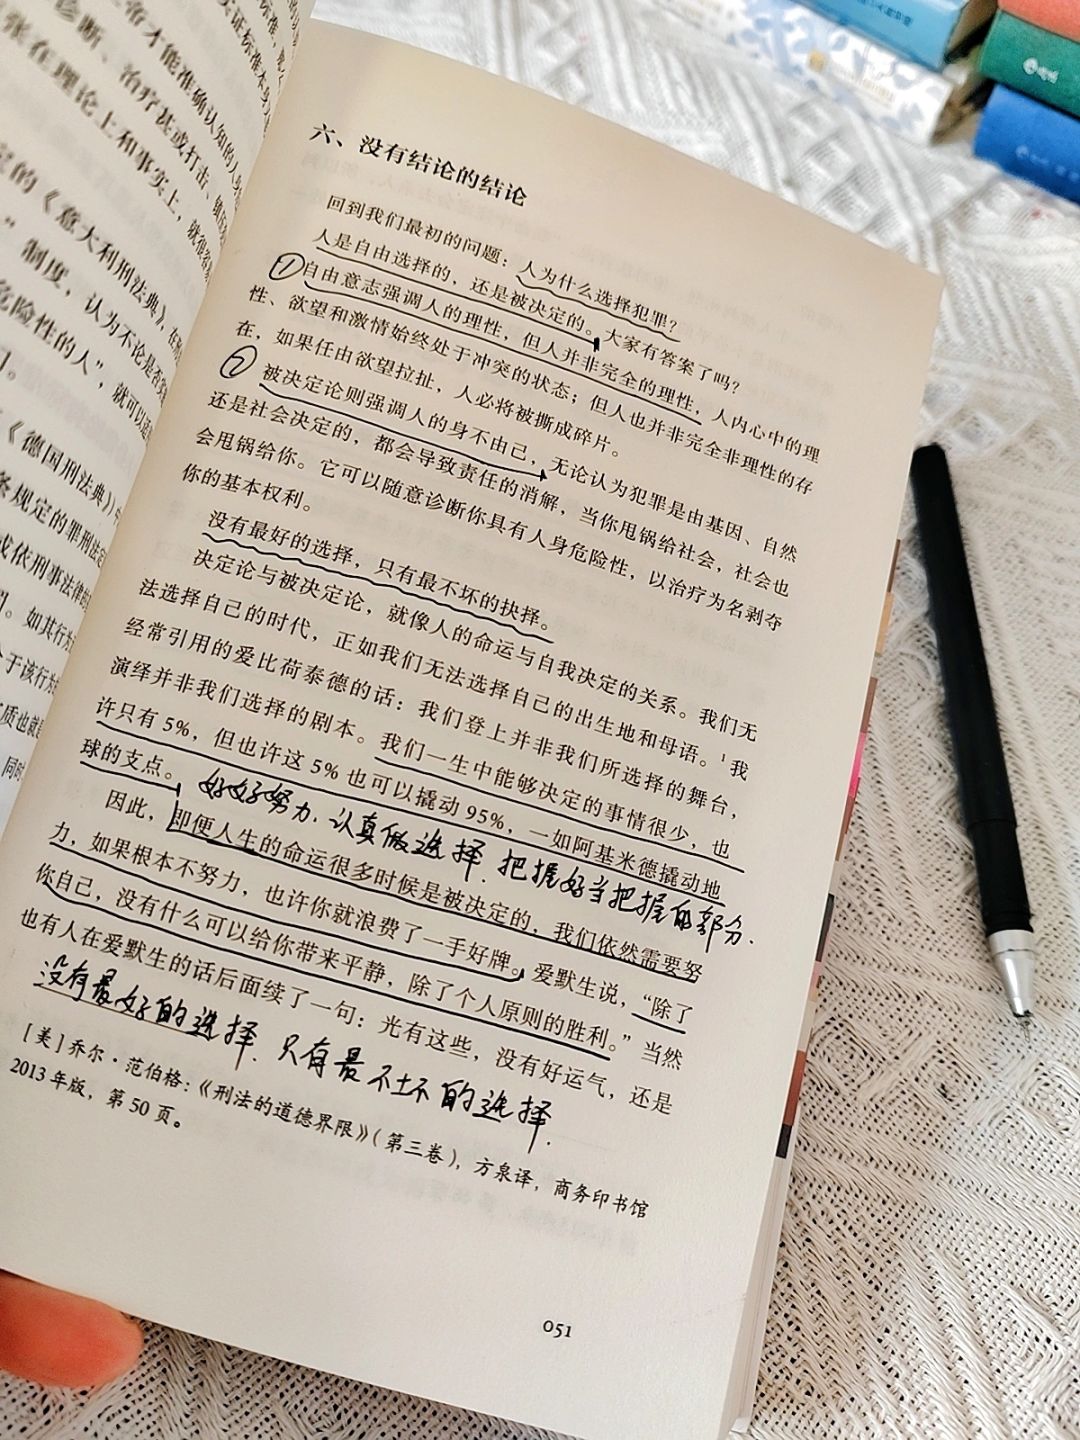 诊断、治疗甚或打击、镇压
张在理论上和事实上，就很容易
定的《意大利刑法典》，在刑
”制度，认为不论是否实
危险性的人”，就可以适
《德国刑法典》中
条规定的罪刑法定
或依刑事法律的
如其行为
于该行为
质也就
同时
六、没有结论的结论
回到我们最初的问题：人为什么选择犯罪？
人是自由选择的，还是被决定的。大家有答案了吗？
①自由意志强调人的理性，但人并非完全的理性，人内心中的理
性、欲望和激情始终处于冲突的状态；但人也并非完全非理性的存
在，如果任由欲望拉扯，人必将被撕成碎片。
②被决定论则强调人的身不由己，无论认为犯罪是由基因、自然
还是社会决定的，都会导致责任的消解，当你甩锅给社会，社会也
会甩锅给你。它可以随意诊断你具有人身危险性，以治疗为名剥夺
你的基本权利。
没有最好的选择，只有最不坏的抉择。
决定论与被决定论，就像人的命运与自我决定的关系。我们无
法选择自己的时代，正如我们无法选择自己的出生地和母语。¹我
经常引用的爱比荷泰德的话：我们登上并非我们所选择的舞台，
演绎并非我们选择的剧本。我们一生中能够决定的事情很少，也
许只有5%，但也许这5%也可以撬动95%，一如阿基米德撬动地
球的支点。
好好努力.认真做选择.把握好当把握的部分.
因此，即便人生的命运很多时候是被决定的，我们依然需要努
力，如果根本不努力，也许你就浪费了一手好牌。爱默生说，“除了
你自己，没有什么可以给你带来平静，除了个人原则的胜利。”当然
也有人在爱默生的话后面续了一句：光有这些，没有好运气，还是
没有最好的选择.只有最不坏的选择.
[美]乔尔·范伯格：《刑法的道德界限》（第三卷），方泉译，商务印书馆
2013年版，第50页。
051